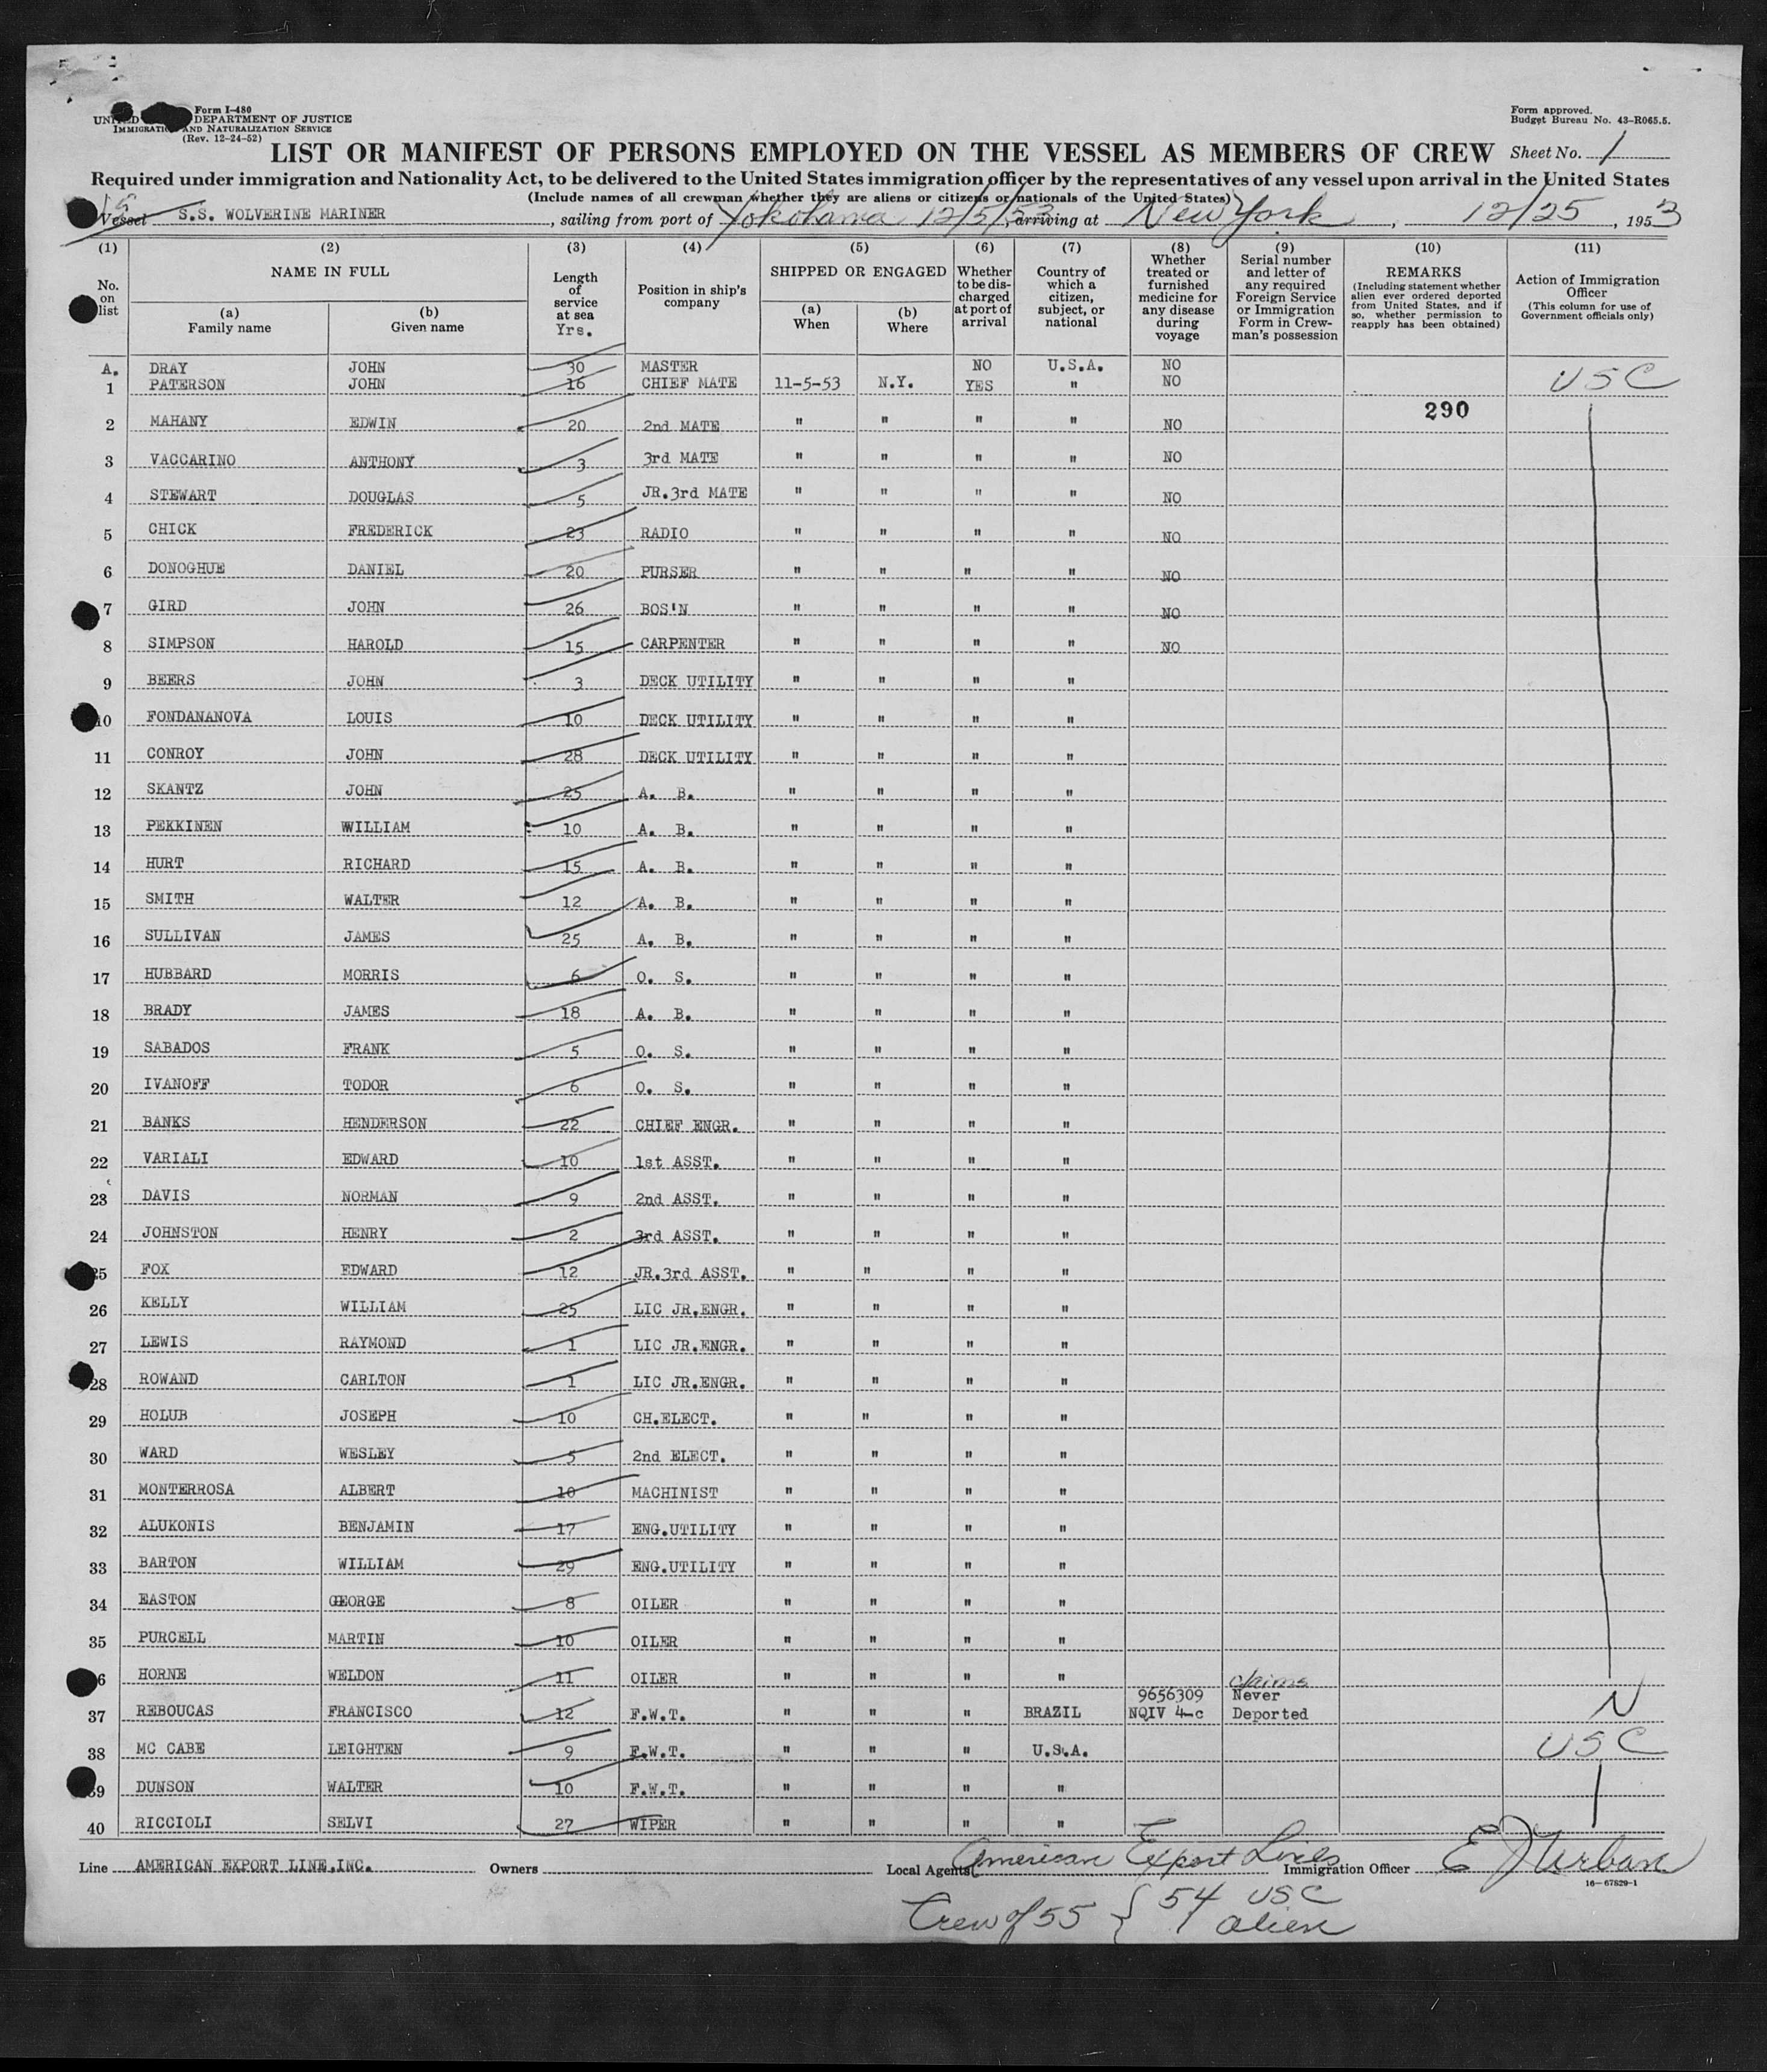 Form I-480
UNITED DEPARTMENT OF JUSTICE
IMMIGRATION AND NATURALIZATION SERVICE
(Rev. 12-24-52)
Form approved.
Budget Bureau No. 43-R065.5.
LIST OR MANIFEST OF PERSONS EMPLOYED ON THE VESSEL AS MEMBERS OF CREW Sheet No. 1
Required under immigration and Nationality Act, to be delivered to the United States immigration officer by the representatives of any vessel upon arrival in the United States
(Include names of all crewman whether they are aliens or citizens or nationals of the United States)
Vessel S.S. WOLVERINE MARINER, sailing from port of Yokohama 12/5/53, arriving at New York, 12/25, 1953
(1) (2) (3) (4) (5) (6) (7) (8) (9) (10) (11)
No. on list
NAME IN FULL
(a) Family name
(b) Given name
Length of service at sea Yrs.
Position in ship's company
SHIPPED OR ENGAGED
(a) When
(b) Where
Whether to be discharged at port of arrival
Country of which a citizen, subject, or national
Whether treated or furnished medicine for any disease during voyage
Serial number and letter of any required Foreign Service or Immigration Form in Crewman's possession
REMARKS
(Including statement whether alien ever ordered deported from United States, and if so, whether permission to reapply has been obtained)
Action of Immigration Officer
(This column for use of Government officials only)
A. DRAY JOHN 30 MASTER NO U.S.A. NO
1 PATERSON JOHN 16 CHIEF MATE 11-5-53 N.Y. YES " NO USC
290
2 MAHANY EDWIN 20 2nd MATE " " " " NO
3 VACCARINO ANTHONY 3 3rd MATE " " " " NO
4 STEWART DOUGLAS 5 JR.3rd MATE " " " " NO
5 CHICK FREDERICK 23 RADIO " " " " NO
6 DONOGHUE DANIEL 20 PURSER " " " " NO
7 GIRD JOHN 26 BOS'N " " " " NO
8 SIMPSON HAROLD 15 CARPENTER " " " " NO
9 BEERS JOHN 3 DECK UTILITY " " " "
10 FONDANANOVA LOUIS 10 DECK UTILITY " " " "
11 CONROY JOHN 28 DECK UTILITY " " " "
12 SKANTZ JOHN 25 A. B. " " " "
13 PEKKINEN WILLIAM 10 A. B. " " " "
14 HURT RICHARD 15 A. B. " " " "
15 SMITH WALTER 12 A. B. " " " "
16 SULLIVAN JAMES 25 A. B. " " " "
17 HUBBARD MORRIS 6 O. S. " " " "
18 BRADY JAMES 18 A. B. " " " "
19 SABADOS FRANK 5 O. S. " " " "
20 IVANOFF TODOR 6 O. S. " " " "
21 BANKS HENDERSON 22 CHIEF ENGR. " " " "
22 VARIALI EDWARD 10 1st ASST. " " " "
23 DAVIS NORMAN 9 2nd ASST. " " " "
24 JOHNSTON HENRY 2 3rd ASST. " " " "
25 FOX EDWARD 12 JR.3rd ASST. " " " "
26 KELLY WILLIAM 25 LIC JR.ENGR. " " " "
27 LEWIS RAYMOND 1 LIC JR.ENGR. " " " "
28 ROWAND CARLTON 1 LIC JR.ENGR. " " " "
29 HOLUB JOSEPH 10 CH.ELECT. " " " "
30 WARD WESLEY 5 2nd ELECT. " " " "
31 MONTERROSA ALBERT 10 MACHINIST " " " "
32 ALUKONIS BENJAMIN 17 ENG.UTILITY " " " "
33 BARTON WILLIAM 29 ENG.UTILITY " " " "
34 EASTON GEORGE 8 OILER " " " "
35 PURCELL MARTIN 10 OILER " " " "
36 HORNE WELDON 11 OILER " " " "
claims
9656309 Never
37 REBOUCAS FRANCISCO 12 F.W.T. " " " BRAZIL NQIV 4-c Deported N
38 MC CABE LEIGHTEN 9 F.W.T. " " " U.S.A. USC
39 DUNSON WALTER 10 F.W.T. " " " "
40 RICCIOLI SELVI 27 WIPER " " " "
Line AMERICAN EXPORT LINE,INC. Owners Local Agents American Export Lines Immigration Officer E J Urban
16-67829-1
Crew of 55 { 54 USC
1 alien